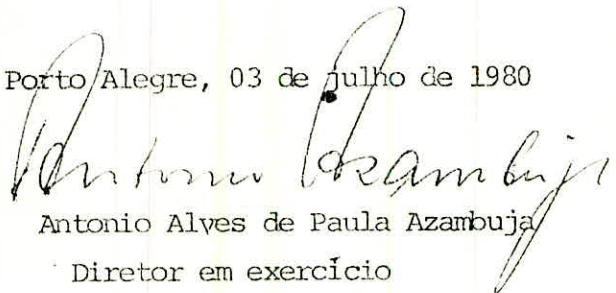 Porto Alegre, 03 de julho de 1980
Antonio Azambuja
Antonio Alves de Paula Azambuja
Diretor em exercício